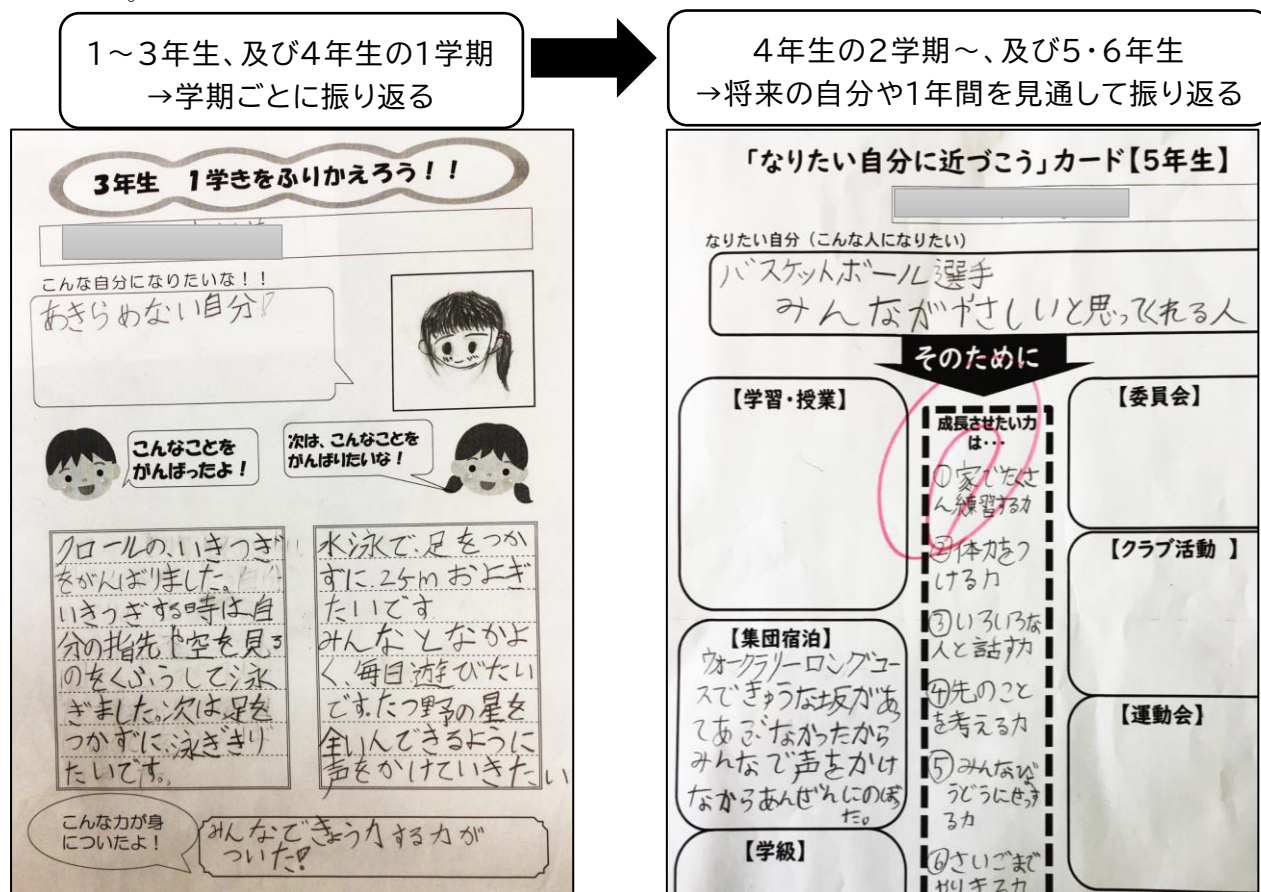 。
1～3年生、及び4年生の1学期
→学期ごとに振り返る
4年生の2学期～、及び5・6年生
→将来の自分や1年間を見通して振り返る
3年生 1学きをふりかえろう！！
こんな自分になりたいな！！
あきらめない自分!
こんなことを
がんばったよ！
次は、こんなことを
がんばりたいな！
クロールの、いきつぎ
をがんばりました。
いきつぎする時は、自
分の指先や空を見る
のをくふうして泳
ぎました。次は、足を
つかずに、泳ぎきり
たいです。
水泳で、足をつか
ずに、25mおよぎ
たいです
みんなとなかよ
く、毎日遊びたい
です。たつ野の星を
全いんでできるように
声をかけていきたい
こんな力が身
についたよ！
みんなできょう力する力が
ついた!
「なりたい自分に近づこう」カード【5年生】
なりたい自分（こんな人になりたい）
バスケットボール選手
みんながやさしいと思ってくれる人
そのために
【学習・授業】
【集団宿泊】
ウォークラリーロングコー
スできゅうな坂があ
てあぶなかったから
みんなで声をかけ
ながらあんぜんにのぼ
た。
【学級】
成長させたい力
は・・・
①家でたくさ
ん練習する力
②体力をつ
ける力
③いろいろな
人と話す力
④先のこと
を考える力
⑤みんなびょ
うどうにせっす
る力
⑥さいごまで
やりきる力
【委員会】
【クラブ活動 】
【運動会】